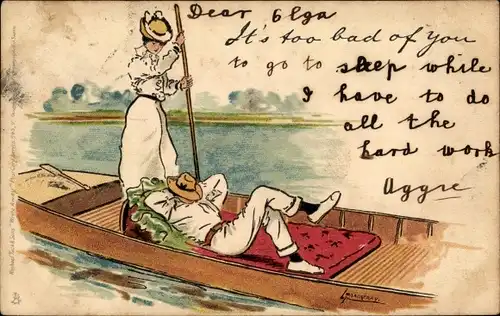 Dear Olga
It's too bad of you
to go to sleep while
I have to do
all the
hard work
Aggie